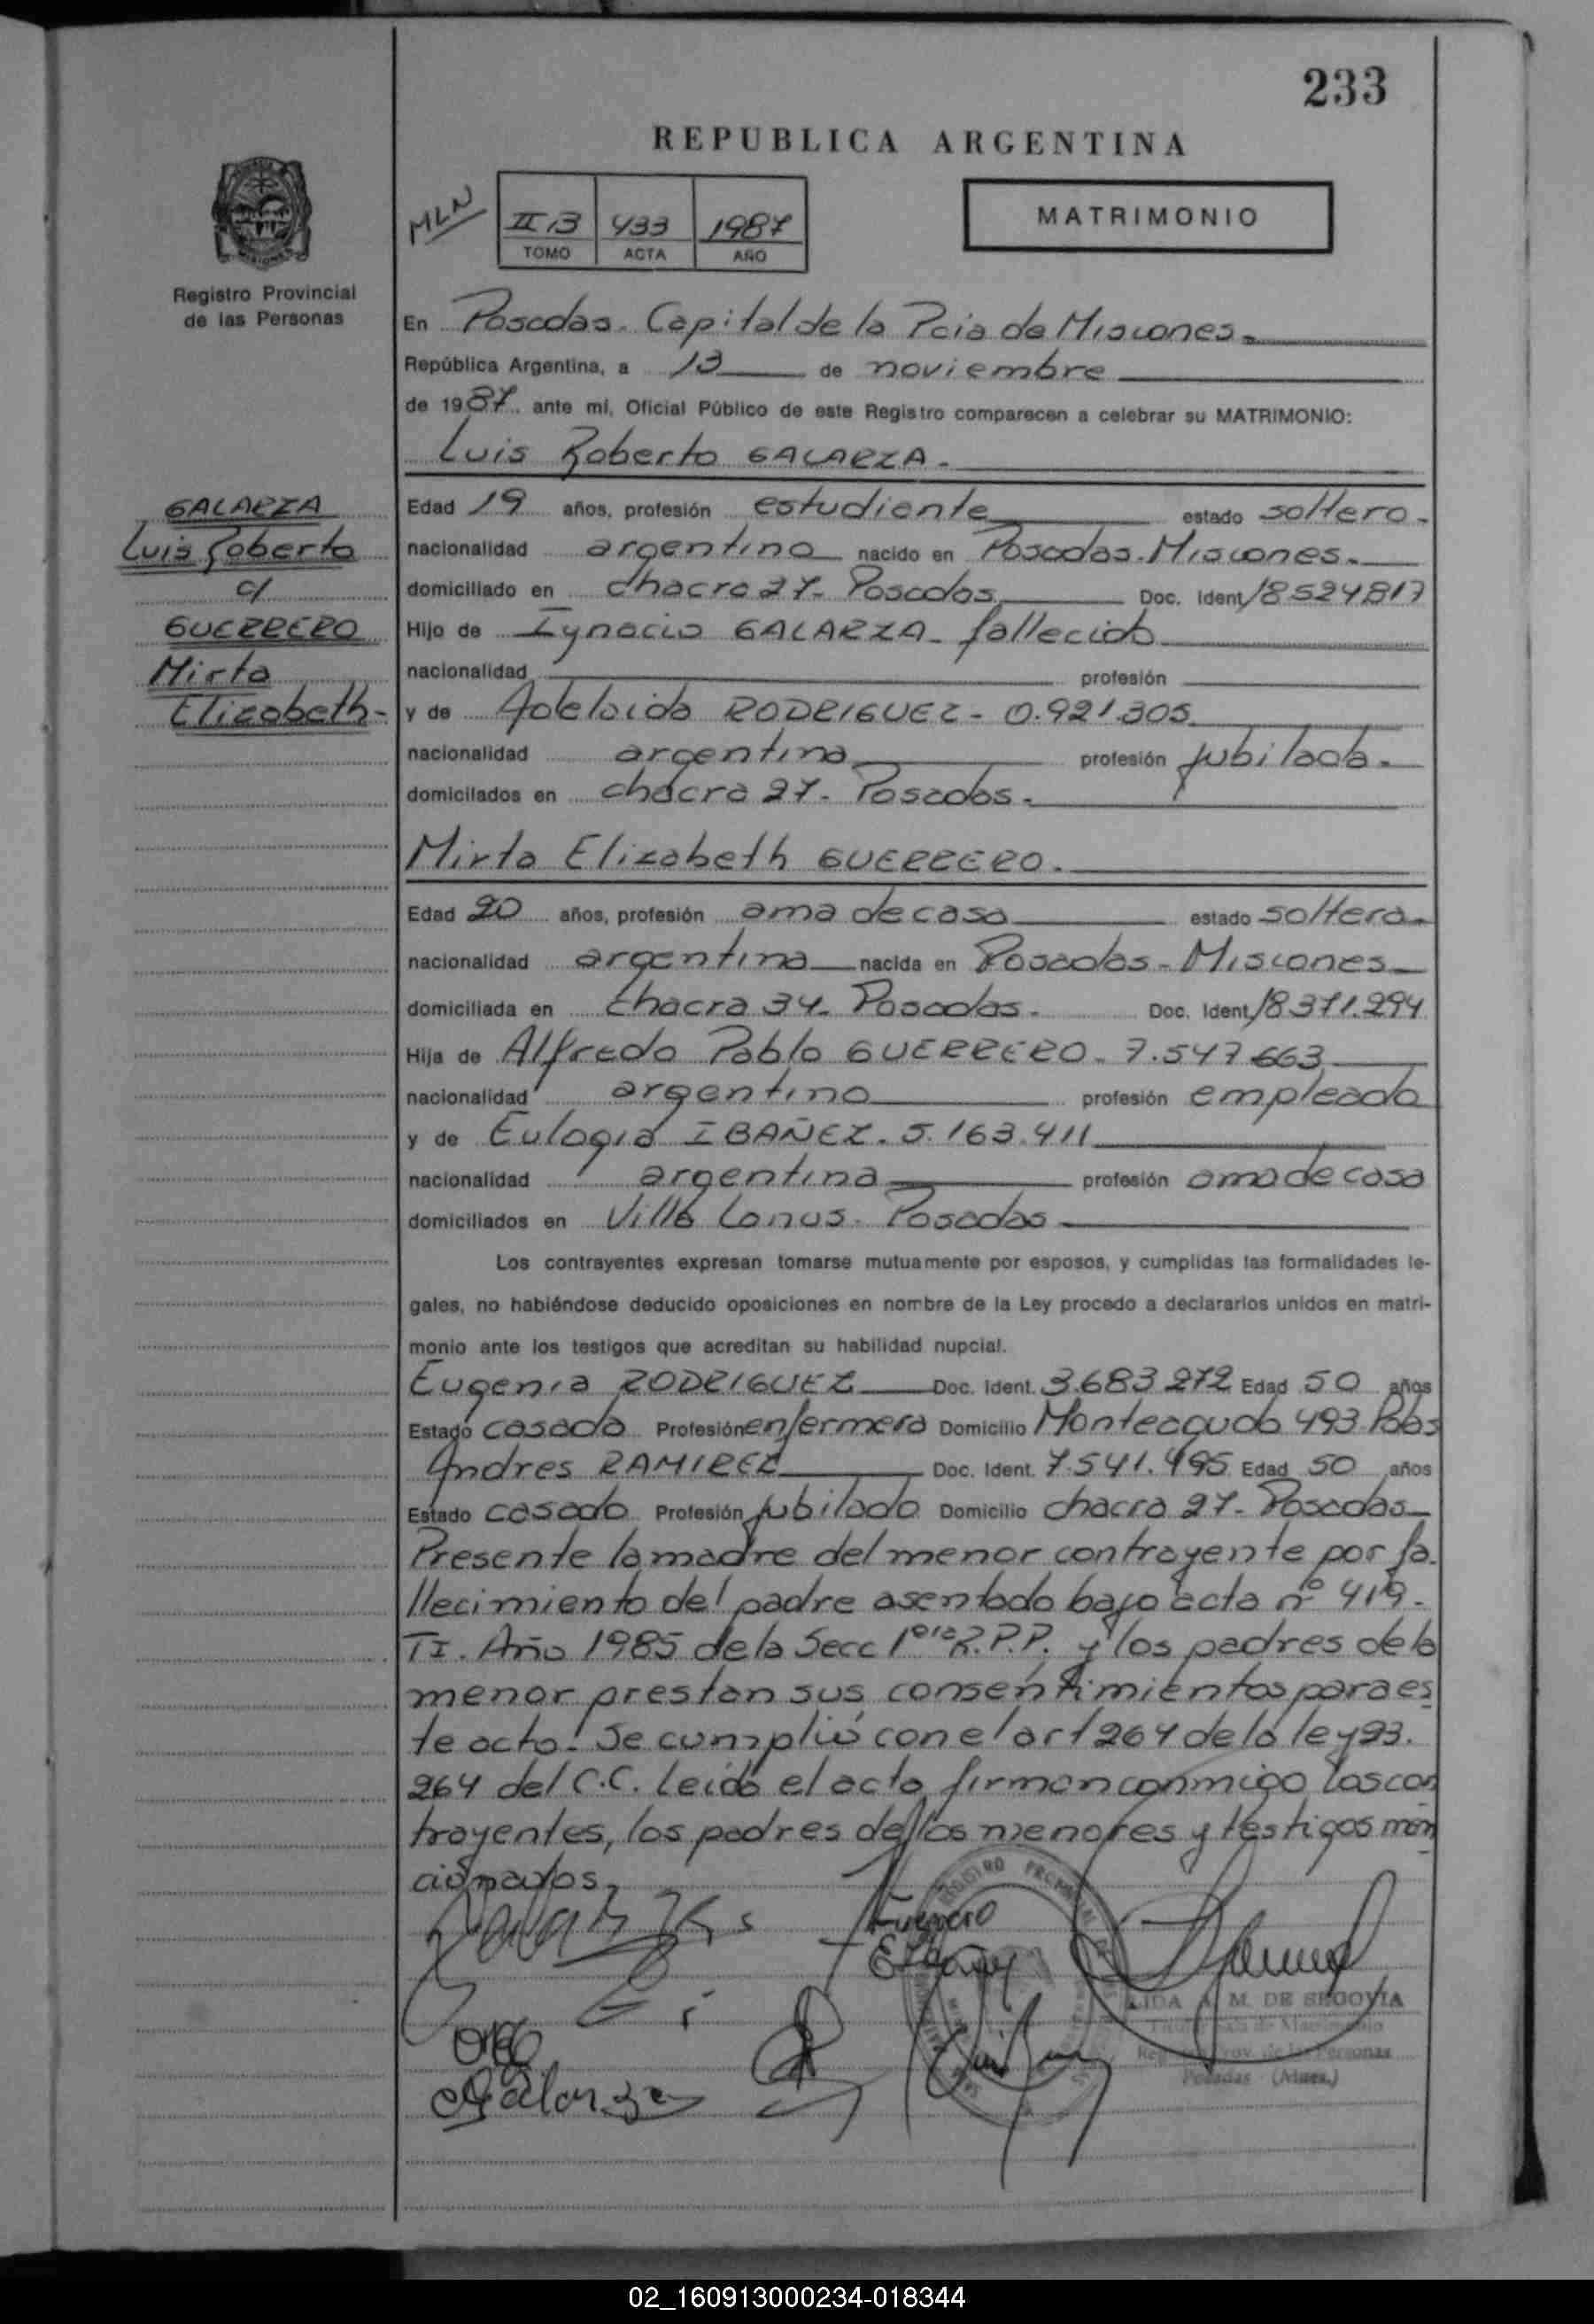 233
REPUBLICA ARGENTINA
MLN
II B 433 1987
TOMO ACTA AÑO
MATRIMONIO
Registro Provincial
de las Personas
En Posadas. Capital de la Pcia de Misiones.
República Argentina, a 13 de noviembre
de 1987 ante mí, Oficial Público de este Registro comparecen a celebrar su MATRIMONIO:
Luis Roberto GALARZA.
GALARZA
Luis Roberto
c/
GUERRERO
Mirta
Elizabeth-
Edad 19 años, profesión estudiante estado soltero.
nacionalidad argentino nacido en Posadas. Misiones.
domiciliado en chacra 27. Posadas Doc. Ident 18524817
Hijo de Ignacio GALARZA. fallecido
nacionalidad profesión
y de Adelaida RODRIGUEZ - 0.921.305
nacionalidad argentina profesión jubilada.
domicilados en chacra 27. Posadas.
Mirta Elizabeth GUERRERO.
Edad 20 años, profesión ama de casa estado soltera.
nacionalidad argentina nacida en Posadas - Misiones
domiciliada en chacra 34. Posadas. Doc. Ident 18371.294
Hija de Alfredo Pablo GUERRERO. 7.547.663
nacionalidad argentino profesión empleado
y de Eulogia IBAÑEZ. 5.163.411
nacionalidad argentina profesión ama de casa
domiciliados en Villa Lanus. Posadas
Los contrayentes expresan tomarse mutuamente por esposos, y cumplidas las formalidades le-
gales, no habiéndose deducido oposiciones en nombre de la Ley procedo a declararlos unidos en matri-
monio ante los testigos que acreditan su habilidad nupcial.
Eugenia RODRIGUEZ Doc. Ident. 3.683.272 Edad 50 años
Estado casada Profesión enfermera Domicilio Monteagudo 493. Pdas
Andres RAMIREZ Doc. Ident. 7.541.495 Edad 50 años
Estado casado Profesión jubilado Domicilio chacra 27. Posadas
Presente la madre del menor contrayente por fa-
llecimiento del padre asentado bajo acta nº 419.
TI. Año 1985 de la Secc 1era R.P.P. y los padres de la
menor prestan sus consentimientos para es
te acto. Se cumplió con el art 264 de la ley 23.
264 del C.C. Leida el acta firman conmigo los con
trayentes, los padres de los menores y testigos men
cionados.
Guerrero
Galarza
LIDA M. DE SEGOVIA
Posadas (Mnes.)
02_160913000234-018344